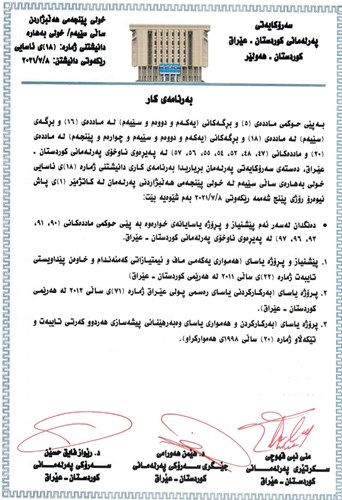 سەرۆکایەتی
پەرلەمانی کوردستان - عێراق
کوردستان - هەولێر
خولی پێنجەمی هەڵبژاردن
ساڵی سێیەم/ خولی بەهارە
دانیشتنی ژمارە: (١٨)ی ئاسایی
رێکەوتی دانیشتن: ٢٠٢١/٧/٨
بەرنامەی کار
بەپێی حوکمی ماددەی (٥) و بڕگەکانی (یەکەم و دووەم و سێیەم) لە ماددەی (١٦) و بڕگەی
(سێیەم) لە ماددەی (١٨) و بڕگەکانی (یەکەم و دووەم و سێیەم و چوارەم و پێنجەم) لە ماددەی
(٢٠) و ماددەکانی (٤٧، ٤٨، ٥٢، ٥٤، ٥٥، ٥٦، ٥٧) لە پەیڕەوی ناوخۆی پەرلەمانی کوردستان -
عێراق، دەستەی سەرۆکایەتی پەرلەمان بڕیاریدا بەرنامەی کاری دانیشتنی ژمارە (١٨)ی ئاسایی
خولی بەهارەی ساڵی سێیەم لە خولی پێنجەمی هەڵبژاردنی پەرلەمان لە کاتژمێر (١)ی پاش
نیوەڕۆ رۆژی پێنج شەممە رێکەوتی ٢٠٢١/٧/٨ بەم شێوەیە بێت:
• دەنگدان لەسەر ئەم پێشنیاز و پرۆژە یاسایانەی خوارەوە بە پێی حوکمی ماددەکانی (٩٠، ٩١،
٩٣، ٩٦، ٩٧) لە پەیڕەوی ناوخۆی پەرلەمانی کوردستان - عێراق:
١. پێشنیاز و پرۆژە یاسای (هەمواری یەکەمی ماف و ئیمتیازاتی کەمئەندام و خاوەن پێداویستی
تایبەت ژمارە (٢٢)ی ساڵی ٢٠١١ لە هەرێمی کوردستان - عێراق).
٢. پرۆژە یاسای (بەرکارکردنی یاسای رەسمی پولی عێراق ژمارە (٧١)ی ساڵی ٢٠١٢ لە هەرێمی
کوردستان - عێراق).
٣. پرۆژە یاسای (بەرکارکردن و هەمواری یاسای وەبەرهێنانی پیشەسازی هەردوو کەرتی تایبەت و
تێکەڵاو ژمارە (٢٠) ساڵی ١٩٩٨ی هەموارکراو).
منی نبی قهوچی
سکرتێری پەرلەمانی
کوردستان - عێراق
د. هێمن هەورامی
جێگری سەرۆکی پەرلەمانی
کوردستان - عێراق
د. رێواز فایق حسێن
سەرۆکی پەرلەمانی
کوردستان - عێراق